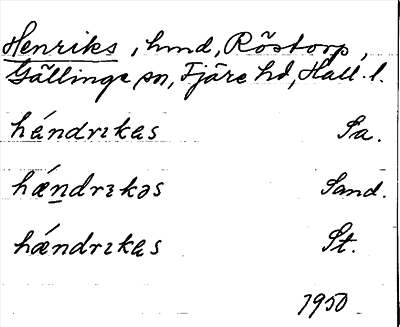 Henriks, hmd, Röstorp,
Gällinge sn, Fjäre hd, Hall. l.
hǽndrɩkas Sa.
hǽndrɩkəs Sand.
hǽndrɩkas St.
1950